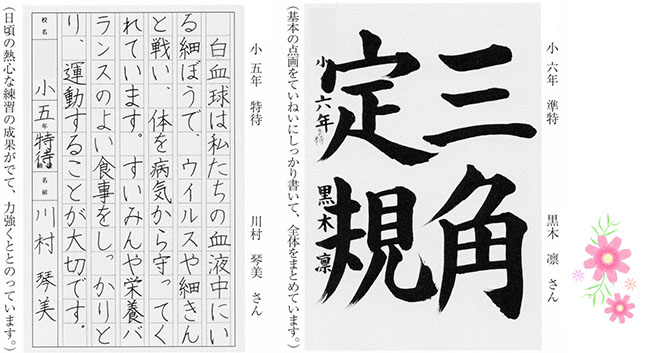 小 六年 準特 黒木 凛 さん
三角
定規
小六年
黒木凛
(基本の点画をていねいにしっかり書いて、全体をまとめています。)
小 五年 特待 川村 琴美 さん
白血球は私たちの血液中にい
る細ぼうで、ウイルスや細きん
と戦い、体を病気から守ってく
れています。すいみんや栄養バ
ランスのよい食事をしっかりと
り、運動することが大切です。
校名 小五年 特待 名前 川村琴美
(日頃の熱心な練習の成果がでて、力強くととのっています。)